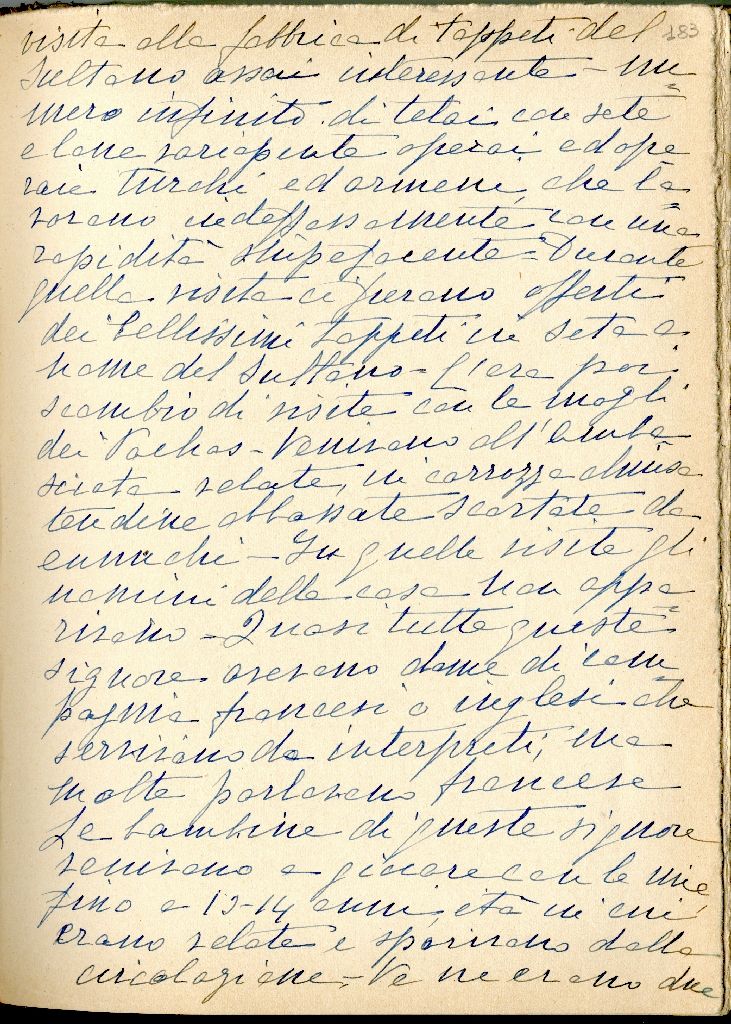 183
visita alla fabbrica di tappeti del
Sultano assai interessante - nu=
mero infinito di telai con sete
e lane variopinte operai ed ope
raie Turchi ed armeni, che la=
vorano indefessamente con una
rapidità stupefacente - Durante
quella visita ci furono offerti
dei bellissimi tappeti in seta a
nome del Sultano - C'era poi
scambio di visite con le mogli
dei Pachas - Venivano all'Amba=
sciata velate, in carrozza chiusa
tendine abbassate scortate da
eunuchi - In quelle visite gli
uomini della casa non appa=
rivano - Quasi tutte queste
signore avevano dame di com=
pagnia francesi o inglesi che
servivano da interpreti, ma
molte parlavano francese
Le bambine di queste signore
venivano a giocare con le mie,
fino a 13-14 anni, età in cui
erano velate e sparivano dalla
circolazione. - Ve ne erano due